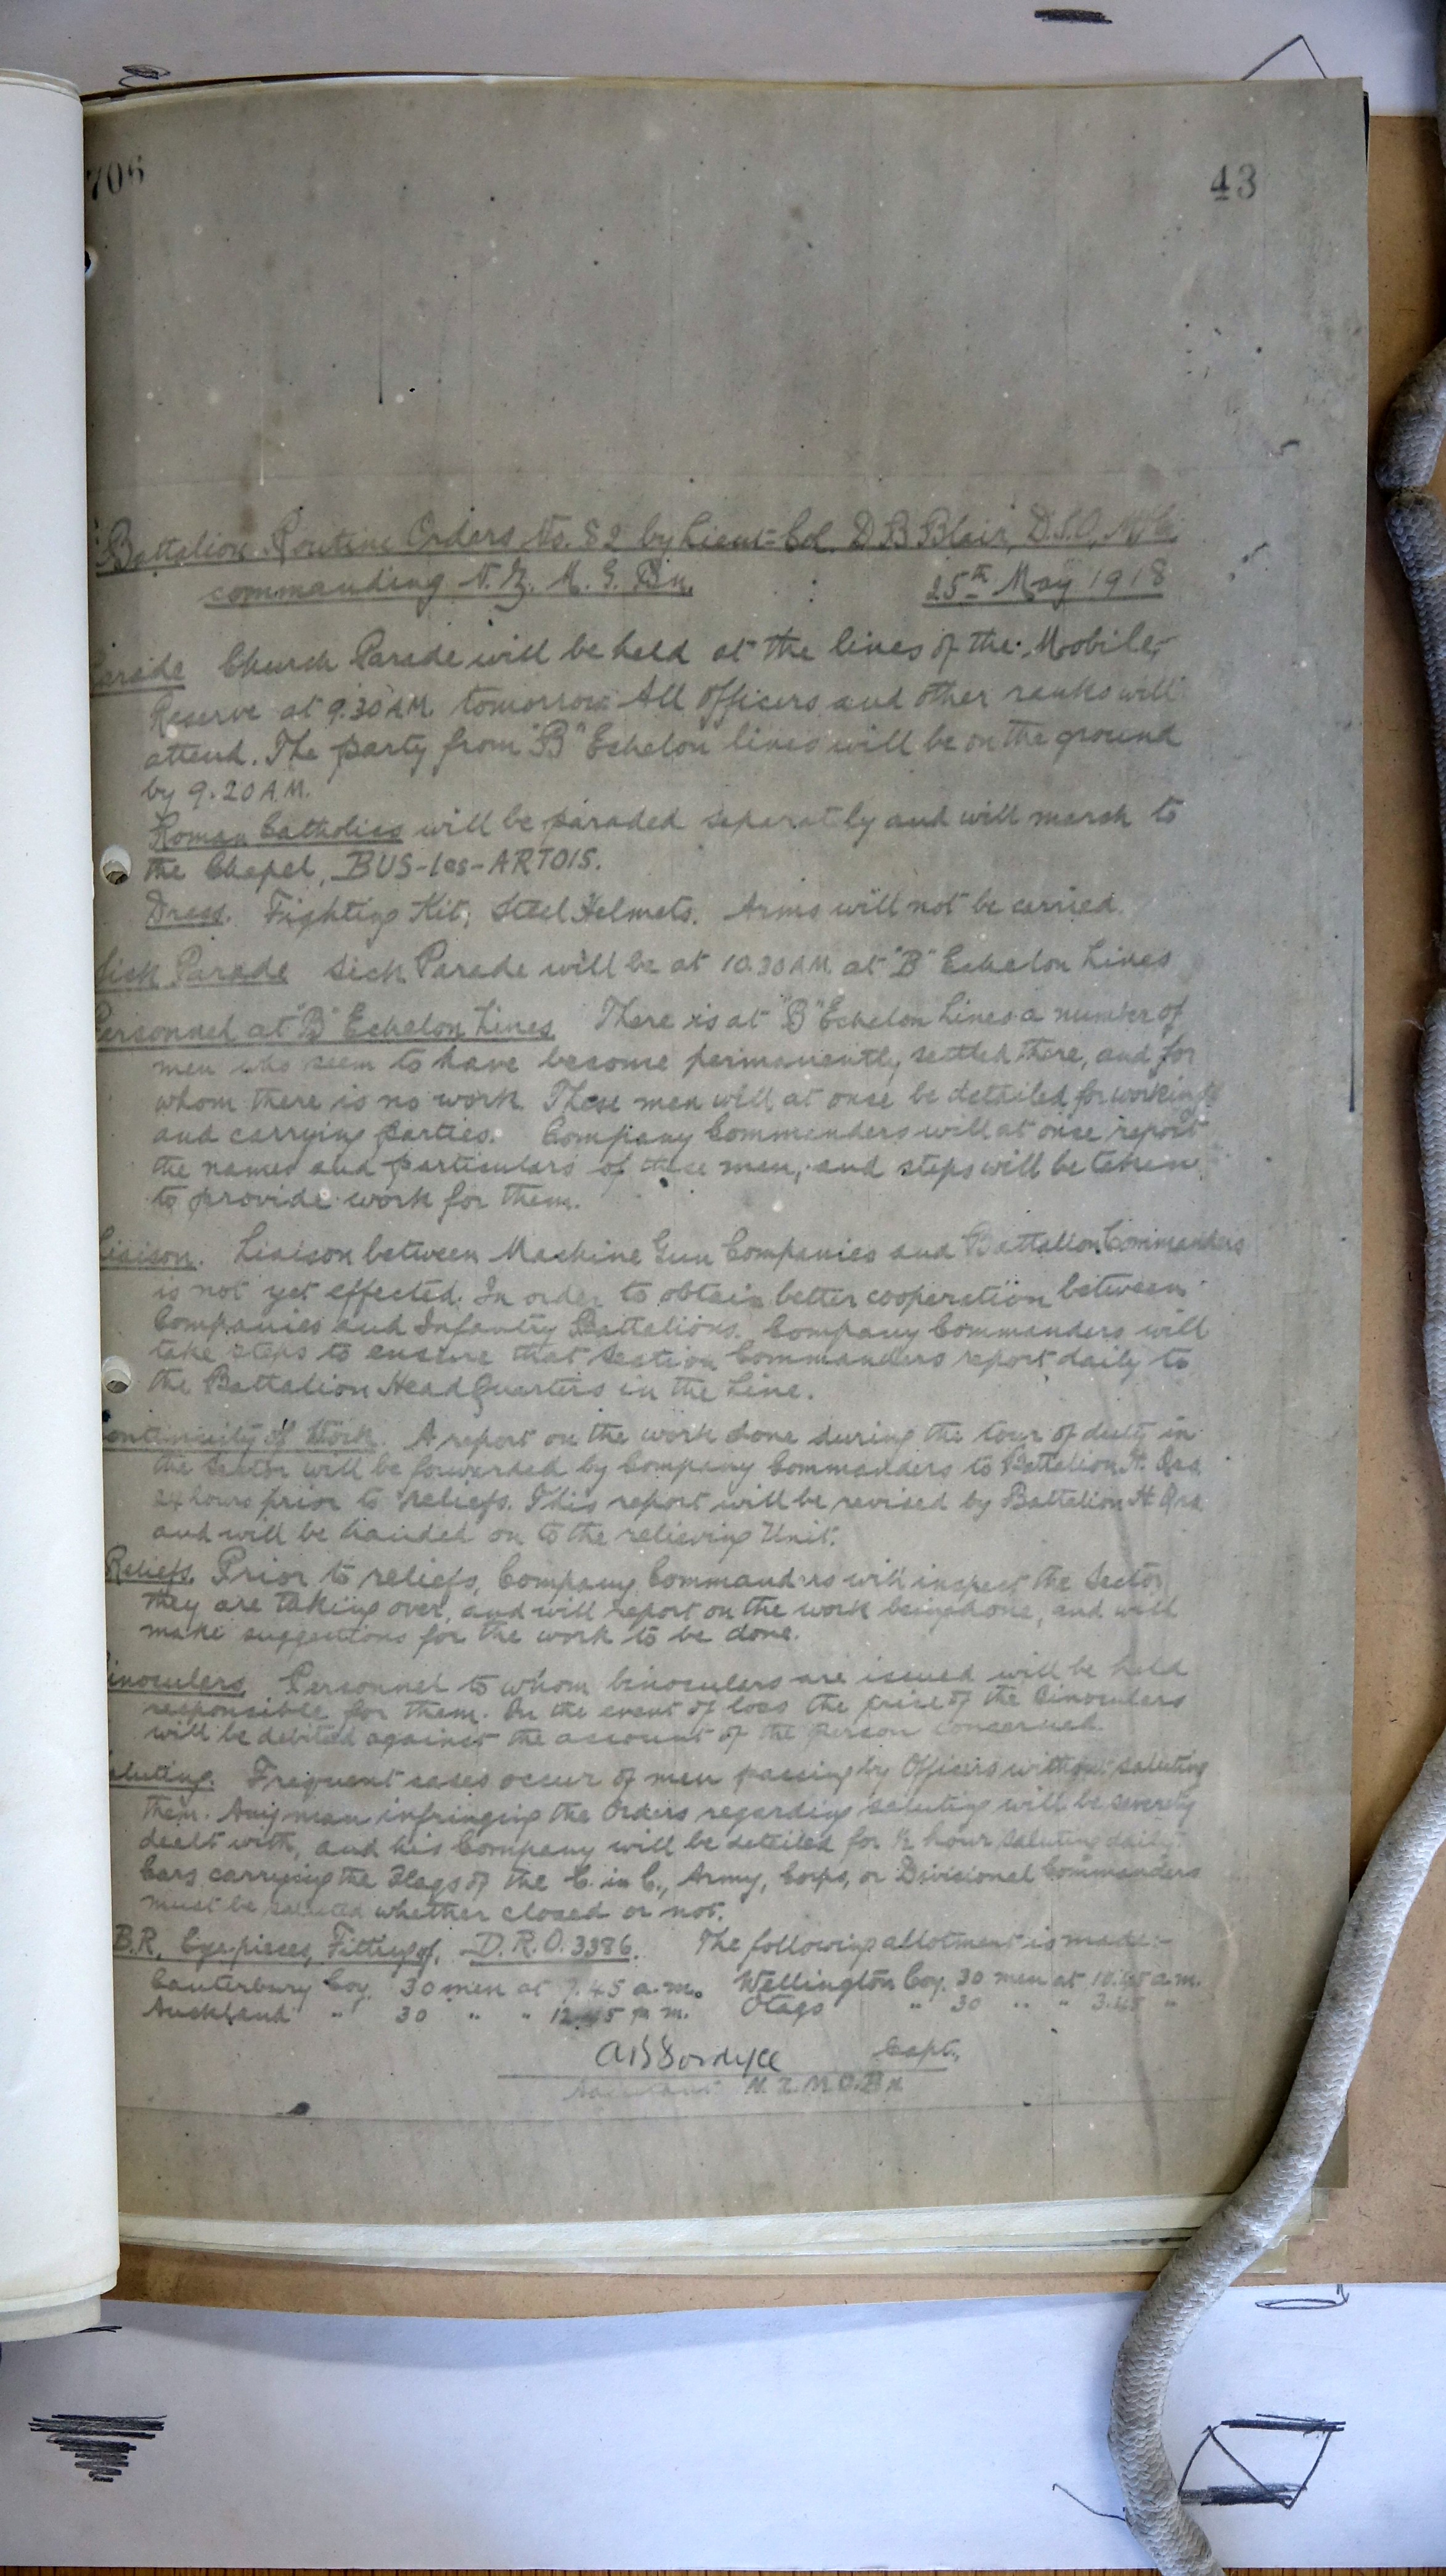 706
43
Battalion Routine Orders No. 82 by Lieut-Col. D B Blair, D.S.O, M.C.
commanding N. Z. M. G. Bn. 25th May 1918
Parade Church Parade will be held at the lines of the Mobile
Reserve at 9.30 A.M. tomorrow All Officers and other ranks will
attend. The party from "B" Echelon lines will be on the ground
by 9.20 A.M.
Roman Catholics will be paraded separatly and will march to
the Chapel, BUS-les-ARTOIS.
Dress. Fighting Kit, Steel Helmets. Arms will not be carried.
Sick Parade Sick Parade will be at 10.30 A.M. at "B" Echelon Lines
Personnel at "B" Echelon Lines. There is at "B" Echelon Lines a number of
men who seem to have become permanently settled there, and for
whom there is no work. These men will at once be detailed for working
and carrying parties. Company Commanders will at once report
the names and particulars of these men, and steps will be taken
to provide work for them.
Liaison. Liaison between Machine Gun Companies and Battalion Commanders
is not yet effected. In order to obtain better cooperation between
Companies and Infantry Battalions. Company Commanders will
take steps to ensure that Section Commanders report daily to
the Battalion HeadQuarters in the Line.
Continuity of Work. A report on the work done during the tour of duty in
the Sector will be forwarded by Company Commanders to Battalion H. Qrs
24 hours prior to reliefs. This report will be revised by Battalion H Qrs
and will be handed on to the relieving Unit.
Reliefs. Prior to reliefs, Company Commanders will inspect the Sector
they are taking over, and will report on the work being done, and will
make suggestions for the work to be done.
Binoculars. Personnel to whom binoculars are issued will be held
responsible for them. In the event of loss the price of the Binoculars
will be debited against the account of the person concerned.
Saluting. Frequent cases occur of men passing by Officers without saluting
them. Any man infringing the Orders regarding saluting will be severely
dealt with, and his Company will be detailed for ½ hour saluting daily
Cars carrying the Flags of the C. in C., Army, Corps, or Divisional Commanders
must be saluted whether closed or not.
B.R. Eye-pieces, Fitting of. D.R.O. 3386. The following allotment is made:-
Canterbury Coy. 30 men at 7.45 a.m. Wellington Coy. 30 men at 10.45 a.m.
Auckland " 30 " " 12.45 p.m. Otago " 30 " " 3.45 "
Capt.,
N.Z.M.G.Bn